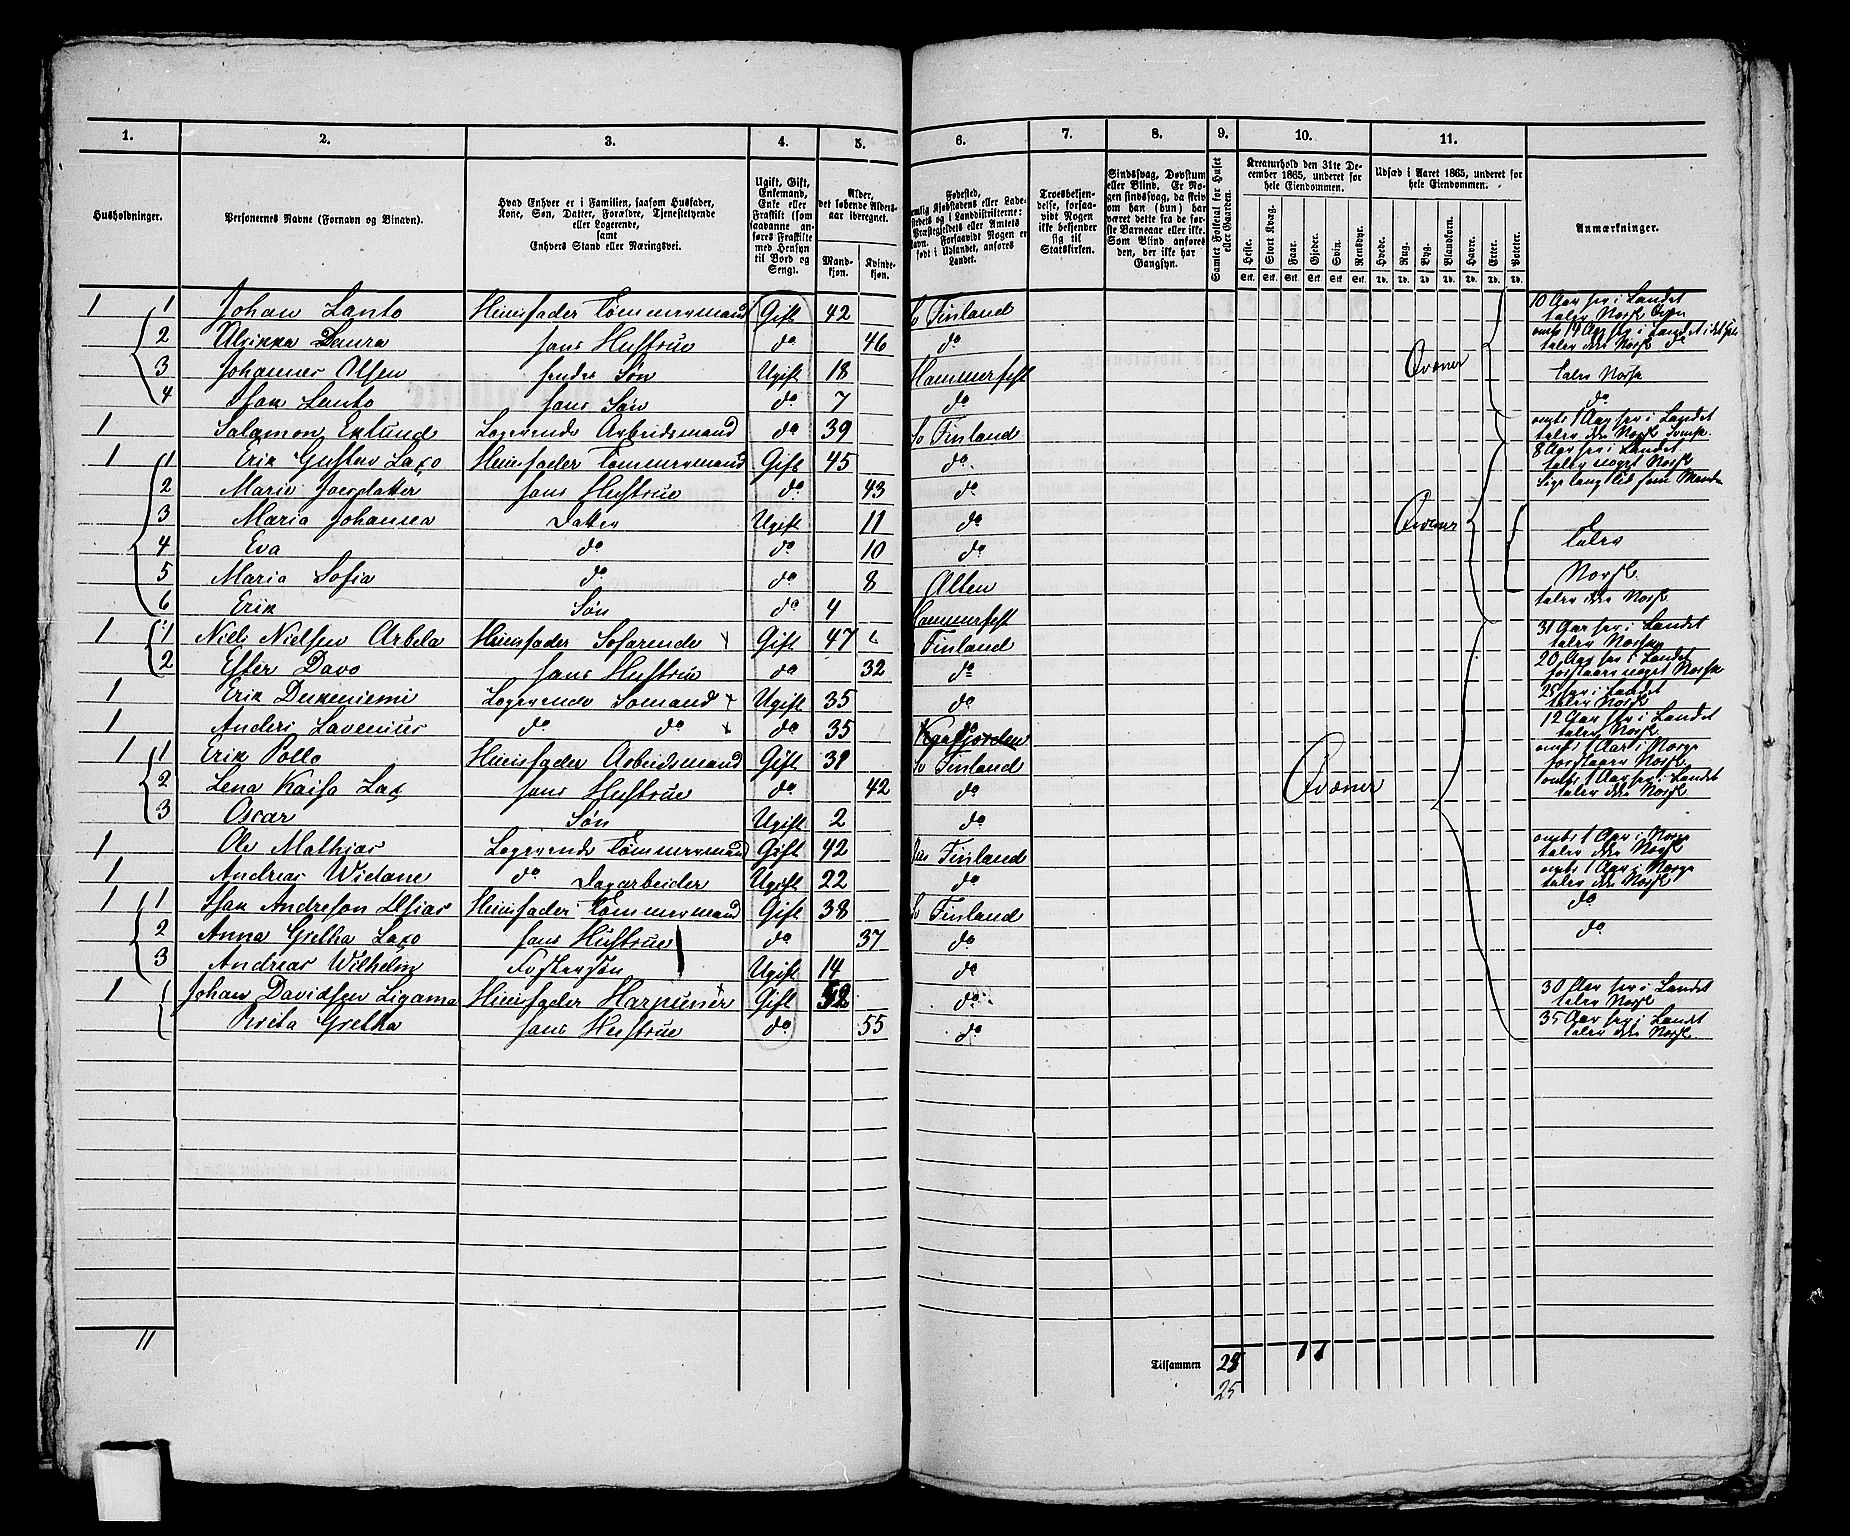 1. 2. 3. 4. 5. 6. 7. 8. 9. 10. 11.
Husholdninger.
Personernes Navne (Fornavn og Binavn).
Hvad Enhver er i Familien, saasom Husfader, Kone, Søn, Datter, Forældre, Tjenestetyende eller Logerende, samt Enhvers Stand eller Næringsvei.
Ugift, Gift, Enkemand, Enke eller Fraskilt (som saadanne anføres Fraskilte med Hensyn til Bord og Seng)
Alder, det løbende Aldersaar iberegnet.
Mandkjøn. Kvindekjøn.
Troesbekjendelse, forsaavidt Nogen ikke bekjender sig til Statskirken.
Sindssvag, Døvstum eller Blind. Er Nogen sindssvag, da skriv om han (hun) har været dette fra de første Barneaar eller ikke. Som Blind anføres den, der ikke har Gangsyn.
Samlet Folketal for Huset eller Gaarden.
Kreaturhold den 31te December 1865, underet for hele Eiendommen.
Heste. Stort Kvæg. Faar. Gjeder. Svin. Rensdyr.
Udsæd i Aaret 1865, underet for hele Eiendommen.
Hvede. Rug. Byg. Blandkorn. Havre. Erter. Poteter.
Anmærkninger.
1 1 Johan Lanto Huusfader Tømmermand Gift 42 Finland 10 Aar her i Landet taler Norsk
2 Laura hans Hustrue do 46 do taler ikke Norsk
3 Johannes Olsen hendes Søn Ugift 18 Hammerfest Qvæner taler Norsk
4 Isak Lanto hans Søn do 7 do do
1 Salamon Eklund Logerende Arbeidsmand do 39 Finland omtr 1 Aar her i Landet taler ikke Norsk
1 1 Erik Gustav Laxo Huusfader Tømmermand Gift 45 do 8 Aar her i Landet taler noget Norsk
2 Maria hans Hustrue do 43 do lige lang tid som Manden
3 Maria Johansen Datter Ugift 11 do Qvæner
4 Eva do do 10 do taler
5 Maria Sofia do do 8 Alten Norsk
6 Erik Søn do 4 Hammerfest taler ikke Norsk
1 1 Niels Nielsen Arbela Huusfader Søfarende Gift 47 Finland 31 Aar her i Landet taler Norsk
2 Ester Davo hans Hustrue do 32 do 20 Aar her i Landet forstaaer noget Norsk
1 Erik Logerende Sømand Ugift 35 do 25 her i Landet taler Norsk
1 Anders Lavenius do do do 35 Kaafjorden do 12 Aar her i Landet taler Norsk
1 1 Erik Pollo Huusfader Arbeidsmand Gift 39 Finland omtr 1 Aar i Norge forstaaer Norsk
2 Lena Kaisa Lax hans Hustrue do 42 do Qvæner omtr 1 Aar her i Landet taler ikke Norsk
3 Oscar Søn Ugift 2 do
1 Ole Mathias Logerende Tømmermand Gift 42 Finland omtr 1 Aar i Norge taler ikke Norsk
1 Andreas do Dagarbeider Ugift 22 do omtr 1 Aar i Norge taler ikke Norsk
1 1 Isak Andreson Huusfader Tømmermand Gift 38 Finland do
2 Anna Gretha Laxo hans Hustrue do 37 do do
3 Andreas Wilhelm Fostersøn Ugift 14 do
1 1 Johan Davidsen Ligama Huusfader Harpuner Gift do 30 Aar her i Landet taler Norsk
Brita Gretha hans Hustrue do 55 do 35 Aar her i Landet taler ikke Norsk
11 Tilsammen 25
25